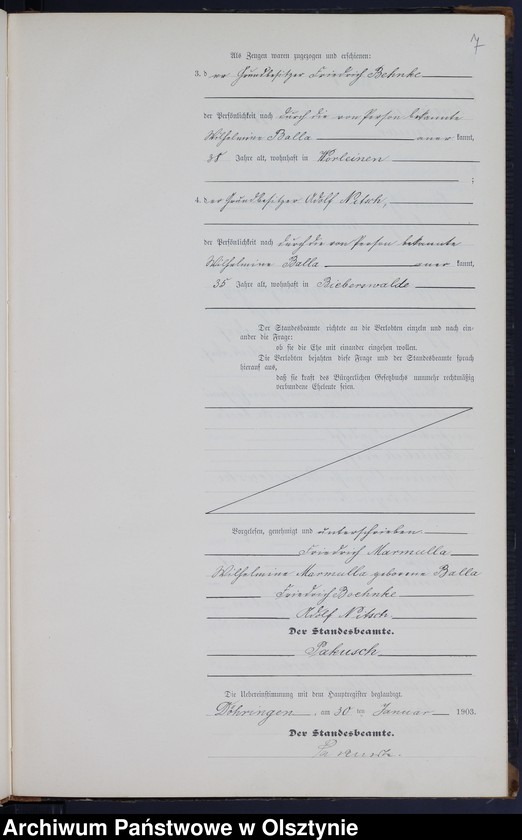 7
Als Zeugen waren zugezogen und erschienen:
3. der Grundbesitzer Friedrich Behnke
der Persönlichkeit nach durch die von Person bekannte
Wilhelmine Balla anerkannt,
38 Jahre alt, wohnhaft in Wörleinen
;
4. der Grundbesitzer Adolf Nitsch,
der Persönlichkeit nach durch die von Person bekannte
Wilhelmine Balla anerkannt,
35 Jahre alt, wohnhaft in Bieberswalde
Der Standesbeamte richtete an die Verlobten einzeln und nach ein-
ander die Frage:
ob sie die Ehe mit einander eingehen wollen.
Die Verlobten bejahten diese Frage und der Standesbeamte sprach
hierauf aus,
daß sie kraft des Bürgerlichen Gesetzbuchs nunmehr rechtmäßig
verbundene Eheleute seien.
Vorgelesen, genehmigt und unterschrieben
Friedrich Marmulla
Wilhelmine Marmulla geborene Balla
Friedrich Boehnke
Adolf Nitsch
Der Standesbeamte.
Pakusch
Die Uebereinstimmung mit dem Hauptregister beglaubigt.
Döhringen, am 30 ten Januar 1903.
Der Standesbeamte.
Pakusch.
Archiwum Państwowe w Olsztynie